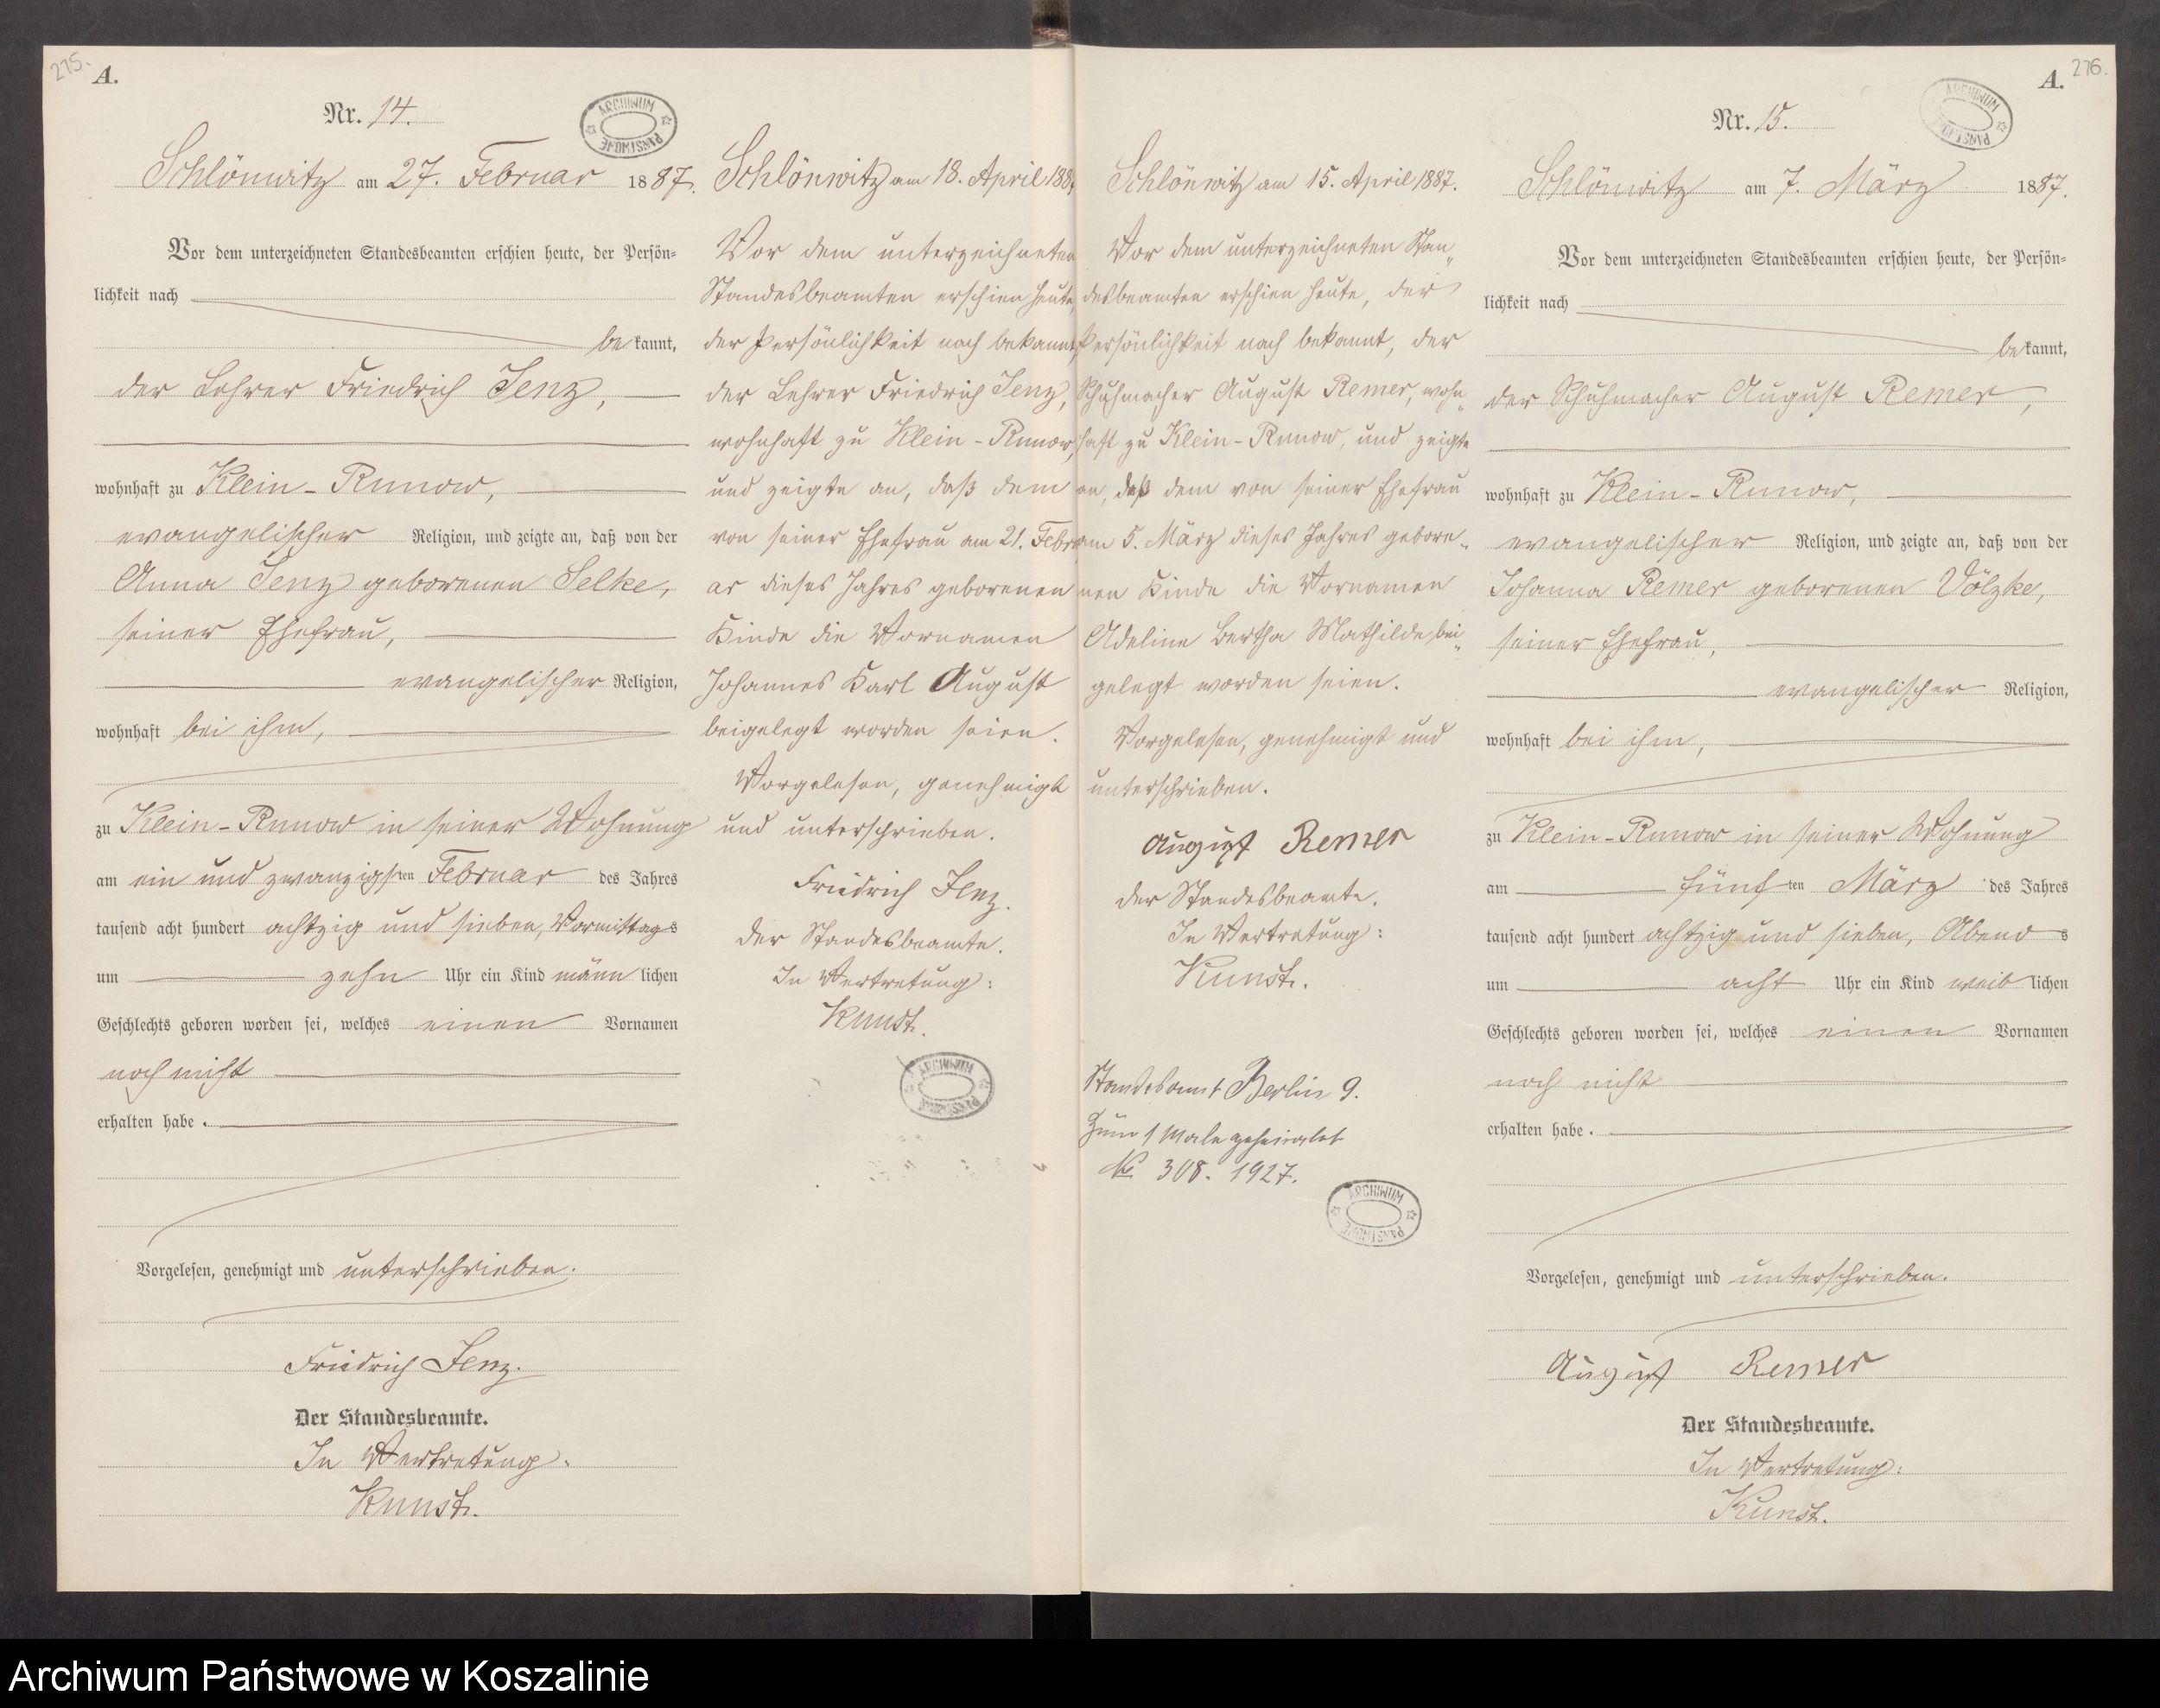 275.
A.
Nr. 14.
ARCHIWUM PAŃSTWOWE
Schlönwitz am 27. Februar 1887.
Vor dem unterzeichneten Standesbeamten erschien heute, der Persön=
lichkeit nach
be kannt,
der Lehrer Friedrich Jenz,
wohnhaft zu Klein-Runow,
evangelischer Religion, und zeigte an, daß von der
Anna Jenz geborenen Selke,
seiner Ehefrau,
evangelischer Religion,
wohnhaft bei ihm,
zu Klein-Runow in seiner Wohnung
am ein und zwanzigsten Februar des Jahres
tausend acht hundert achtzig und sieben, Vormittags
um zehn Uhr ein Kind männlichen
Geschlechts geboren worden sei, welches einen Vornamen
noch nicht
erhalten habe.
Vorgelesen, genehmigt und unterschrieben.
Friedrich Jenz.
Der Standesbeamte.
In Vertretung:
Kunst.
Schlönwitz am 18. April 188
Vor dem unterzeichneten
Standesbeamten erschien heute,
der Persönlichkeit nach bekannt,
der Lehrer Friedrich Jenz,
wohnhaft zu Klein-Runow,
und zeigte an, daß dem
von seiner Ehefrau am 21. Febru
ar dieses Jahres geborenen
Kinde die Vornamen
Johannes Karl August
beigelegt worden seien.
Vorgelesen, genehmigt
und unterschrieben.
Friedrich Jenz.
Der Standesbeamte.
In Vertretung:
Kunst.
ARCHIWUM PAŃSTWOWE
Schlönwitz am 15. April 1887.
Vor dem unterzeichneten Stan„
desbeamten erschien heute, der
Persönlichkeit nach bekannt, der
Schuhmacher August Remer, wohn„
haft zu Klein-Runow, und zeigte
an, daß dem von seiner Ehefrau
am 5. März dieses Jahres gebore„
nen Kinde die Vornamen
Adeline Bertha Mathilde bei„
gelegt worden seien.
Vorgelesen, genehmigt und
unterschrieben.
August Remer
Der Standesbeamte.
In Vertretung:
Kunst.
Standesamt Berlin 9.
Zum 1 Male geheiratet
No 308. 1927.
ARCHIWUM PAŃSTWOWE
276.
A.
Nr. 15.
ARCHIWUM PAŃSTWOWE
Schlönwitz am 7. März 1887.
Vor dem unterzeichneten Standesbeamten erschien heute, der Persön=
lichkeit nach
be kannt,
der Schuhmacher August Remer,
wohnhaft zu Klein-Runow,
evangelischer Religion, und zeigte an, daß von der
Johanna Remer geborenen Völzke,
seiner Ehefrau,
evangelischer Religion,
wohnhaft bei ihm,
zu Klein-Runow in seiner Wohnung
am fünften März des Jahres
tausend acht hundert achtzig und sieben, Abends
um acht Uhr ein Kind weiblichen
Geschlechts geboren worden sei, welches einen Vornamen
noch nicht
erhalten habe.
Vorgelesen, genehmigt und unterschrieben.
August Remer
Der Standesbeamte.
In Vertretung:
Kunst.
Archiwum Państwowe w Koszalinie